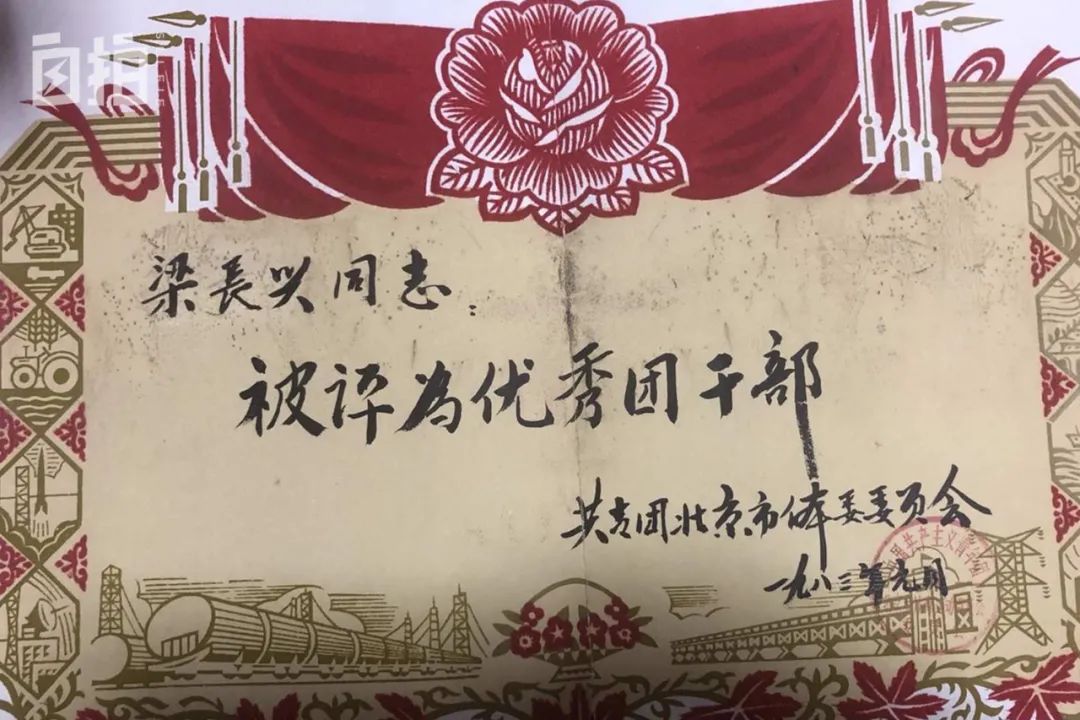 自拍
SELFIE
梁長兴同志：
被评为优秀团干部
共青团北京市体委委员会
一九八三年元月